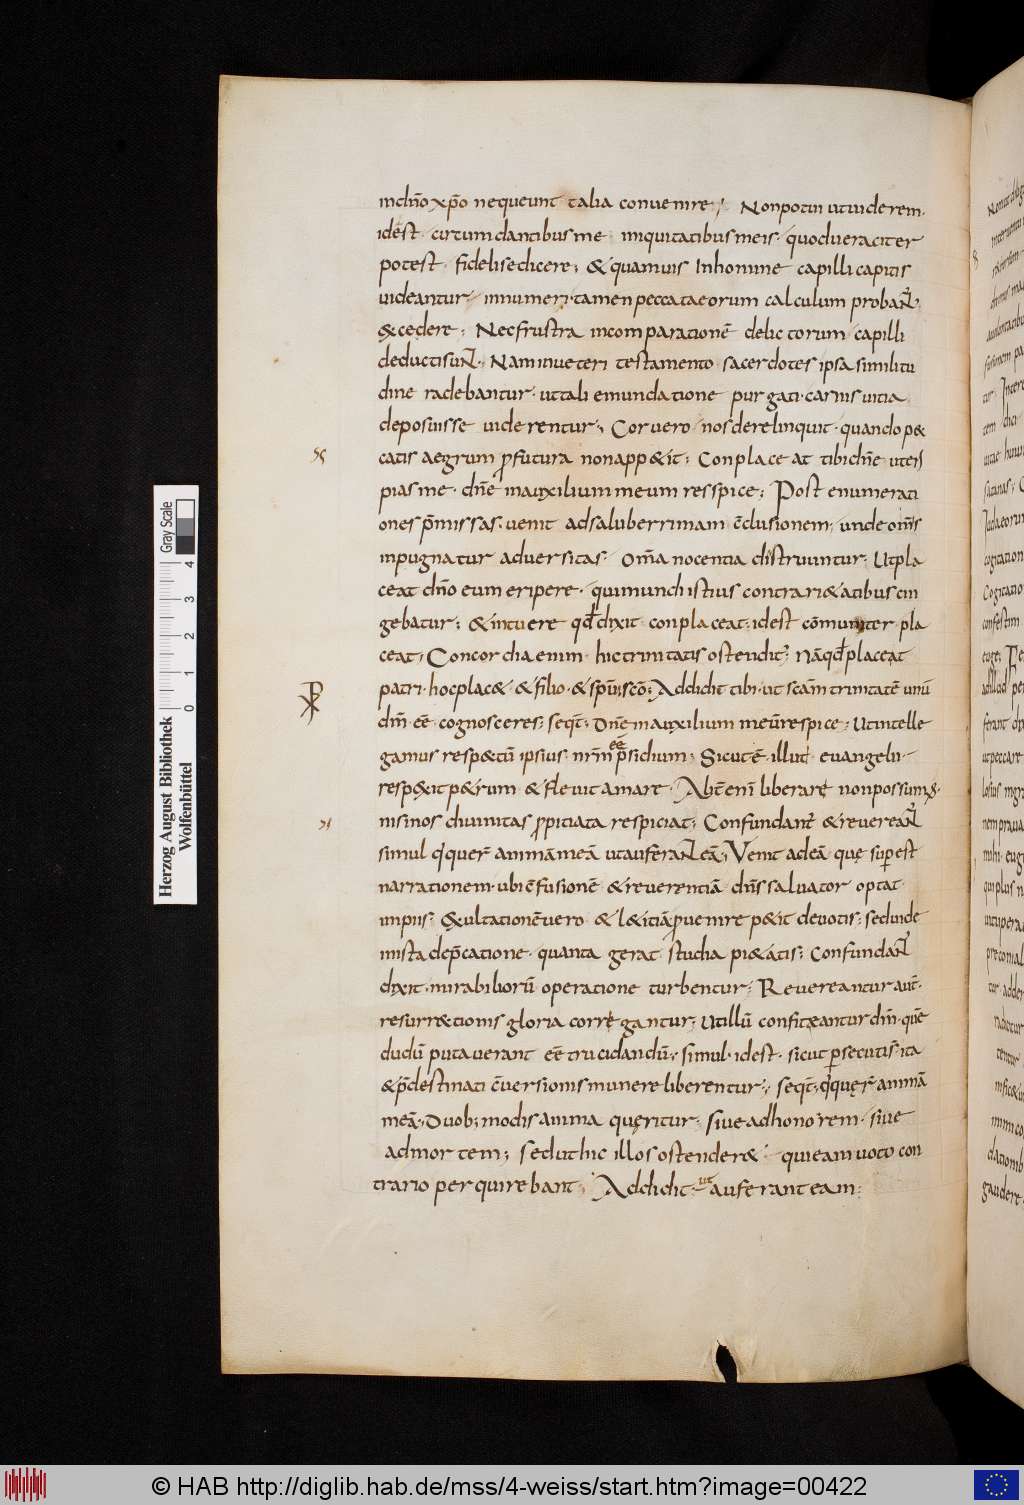 indño xp̄o nequeunt talia conuenire; Non potui ut uiderem.
idest circumdantibus me iniquitatibus meis. quod ueraciter
potest fidelis edicere; & quamuis In homine capilli capitis
uideantur innumeri. tamen peccatae orum calculum probant̄
excedere; Nec frustra in comparationē delictorum capilli
deducti sunt̄. Nam in ueteri testamento sacerdotes ipsa similitu
dine radebantur. ut tali emundatione purgati. carnis uitia
deposuisse uiderentur; Cor uero nos derelinquit. quando pec
catis aegrum p̄futura non app&it; Conplaceat tibi dñe ut eri
pias me. dñe in auxilium meum respice; Post enumerati
ones p̄missas. uenit ad saluberrimam c̄clusionem, unde om̄is
inpugnatur aduersitas. om̄a nocentia distruuntur; Ut pla
ceat dño eum eripere. qui mundi istius contrari&atibus cin
gebatur; & intuere qd̄ dixit conplaceat; id est cōmuniter pla
ceat; Concordia enim hic trinitatis ostendit̄; Nāqd̄ placeat
patri. hoc plac& & filio. & sp̄ui sc̄o; Addidit tibi. ut sc̄am trinitatē unū
dm̄ eē cognosceres; seqt̄; dñe in auxilium meū respice; Ut intelle
gamus resp&tū ipsius nr̄m eē p̄sidium; Sicut ē illut euangelii
resp&xit p&rum & fleuit amare. Ab t̄ enī liberare non possumus.
nisi nos diuinitas p̄pitiata respiciat; Confundant̄ & reuereant̄
simul q̄ quer̄ animā meā ut auferant eā; Venit ad eā quę sup̄est
narrationem. ubi c̄fusionē & reuerentiā dn̄s saluator optat
impiis; Exultationē uero & l&itiā p̄uenire p&it deuotis; sed uide
in ista dep̄catione. quanta gerat studia pi&atis; Confundant̄
dixit. mirabiliorū operatione turbentur; Reuereantur aut̄.
resurr&tionis gloria corregantur; Ut illū confiteantur dm̄. quē
dudū putauerant eē trucidandū; simul. idest. sicut p̄secutis ita
& p̄destinati c̄uersionis munere liberentur; seqt̄; q̄ quęr̄ animā
meā; Duob; modis anima quęritur; siue ad honorem. siue
ad mortem; sed ut hic illos ostender& qui eam uoto con
trario perquirebant; Addidit; ut auferant eam;
Herzog August Bibliothek
Wolfenbüttel
0 1 2 3 4
Gray Scale
© HAB http://diglib.hab.de/mss/4-weiss/start.htm?image=00422